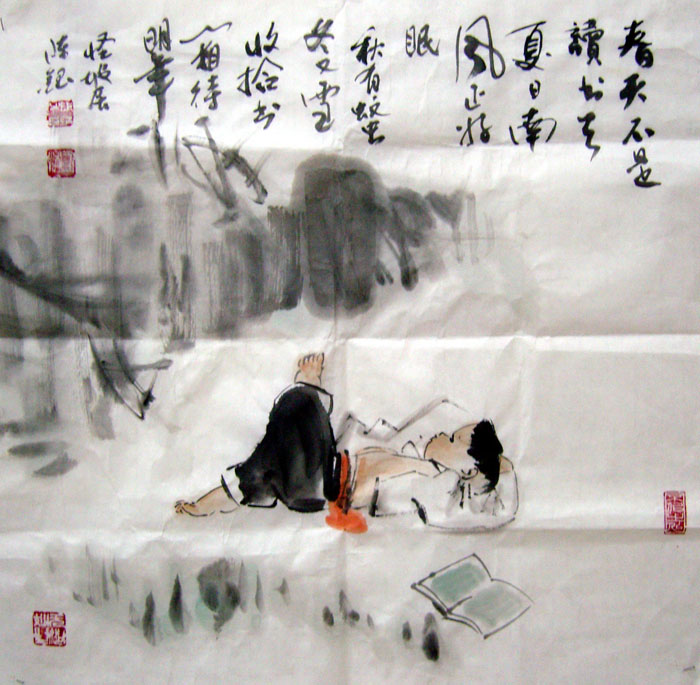 春天不是
讀书天
夏日南
風正好
眠
秋有蚊虫
冬又雪
收拾书
一箱待
明年
怪坡居